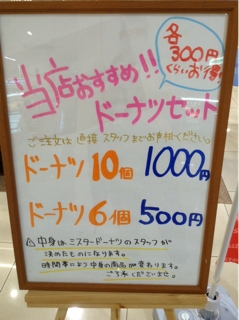 各
300円
くらいお得!
当店おすすめ!!
ドーナツセット
ご注文は 直接 スタッフまでお声掛けください。
ドーナツ 10個 1000円
ドーナツ 6個 500円
⚠中身は ミスタードーナツのスタッフが
決めたものになります。
時間帯により中身の商品が変わります。
ご了承くださいませ。